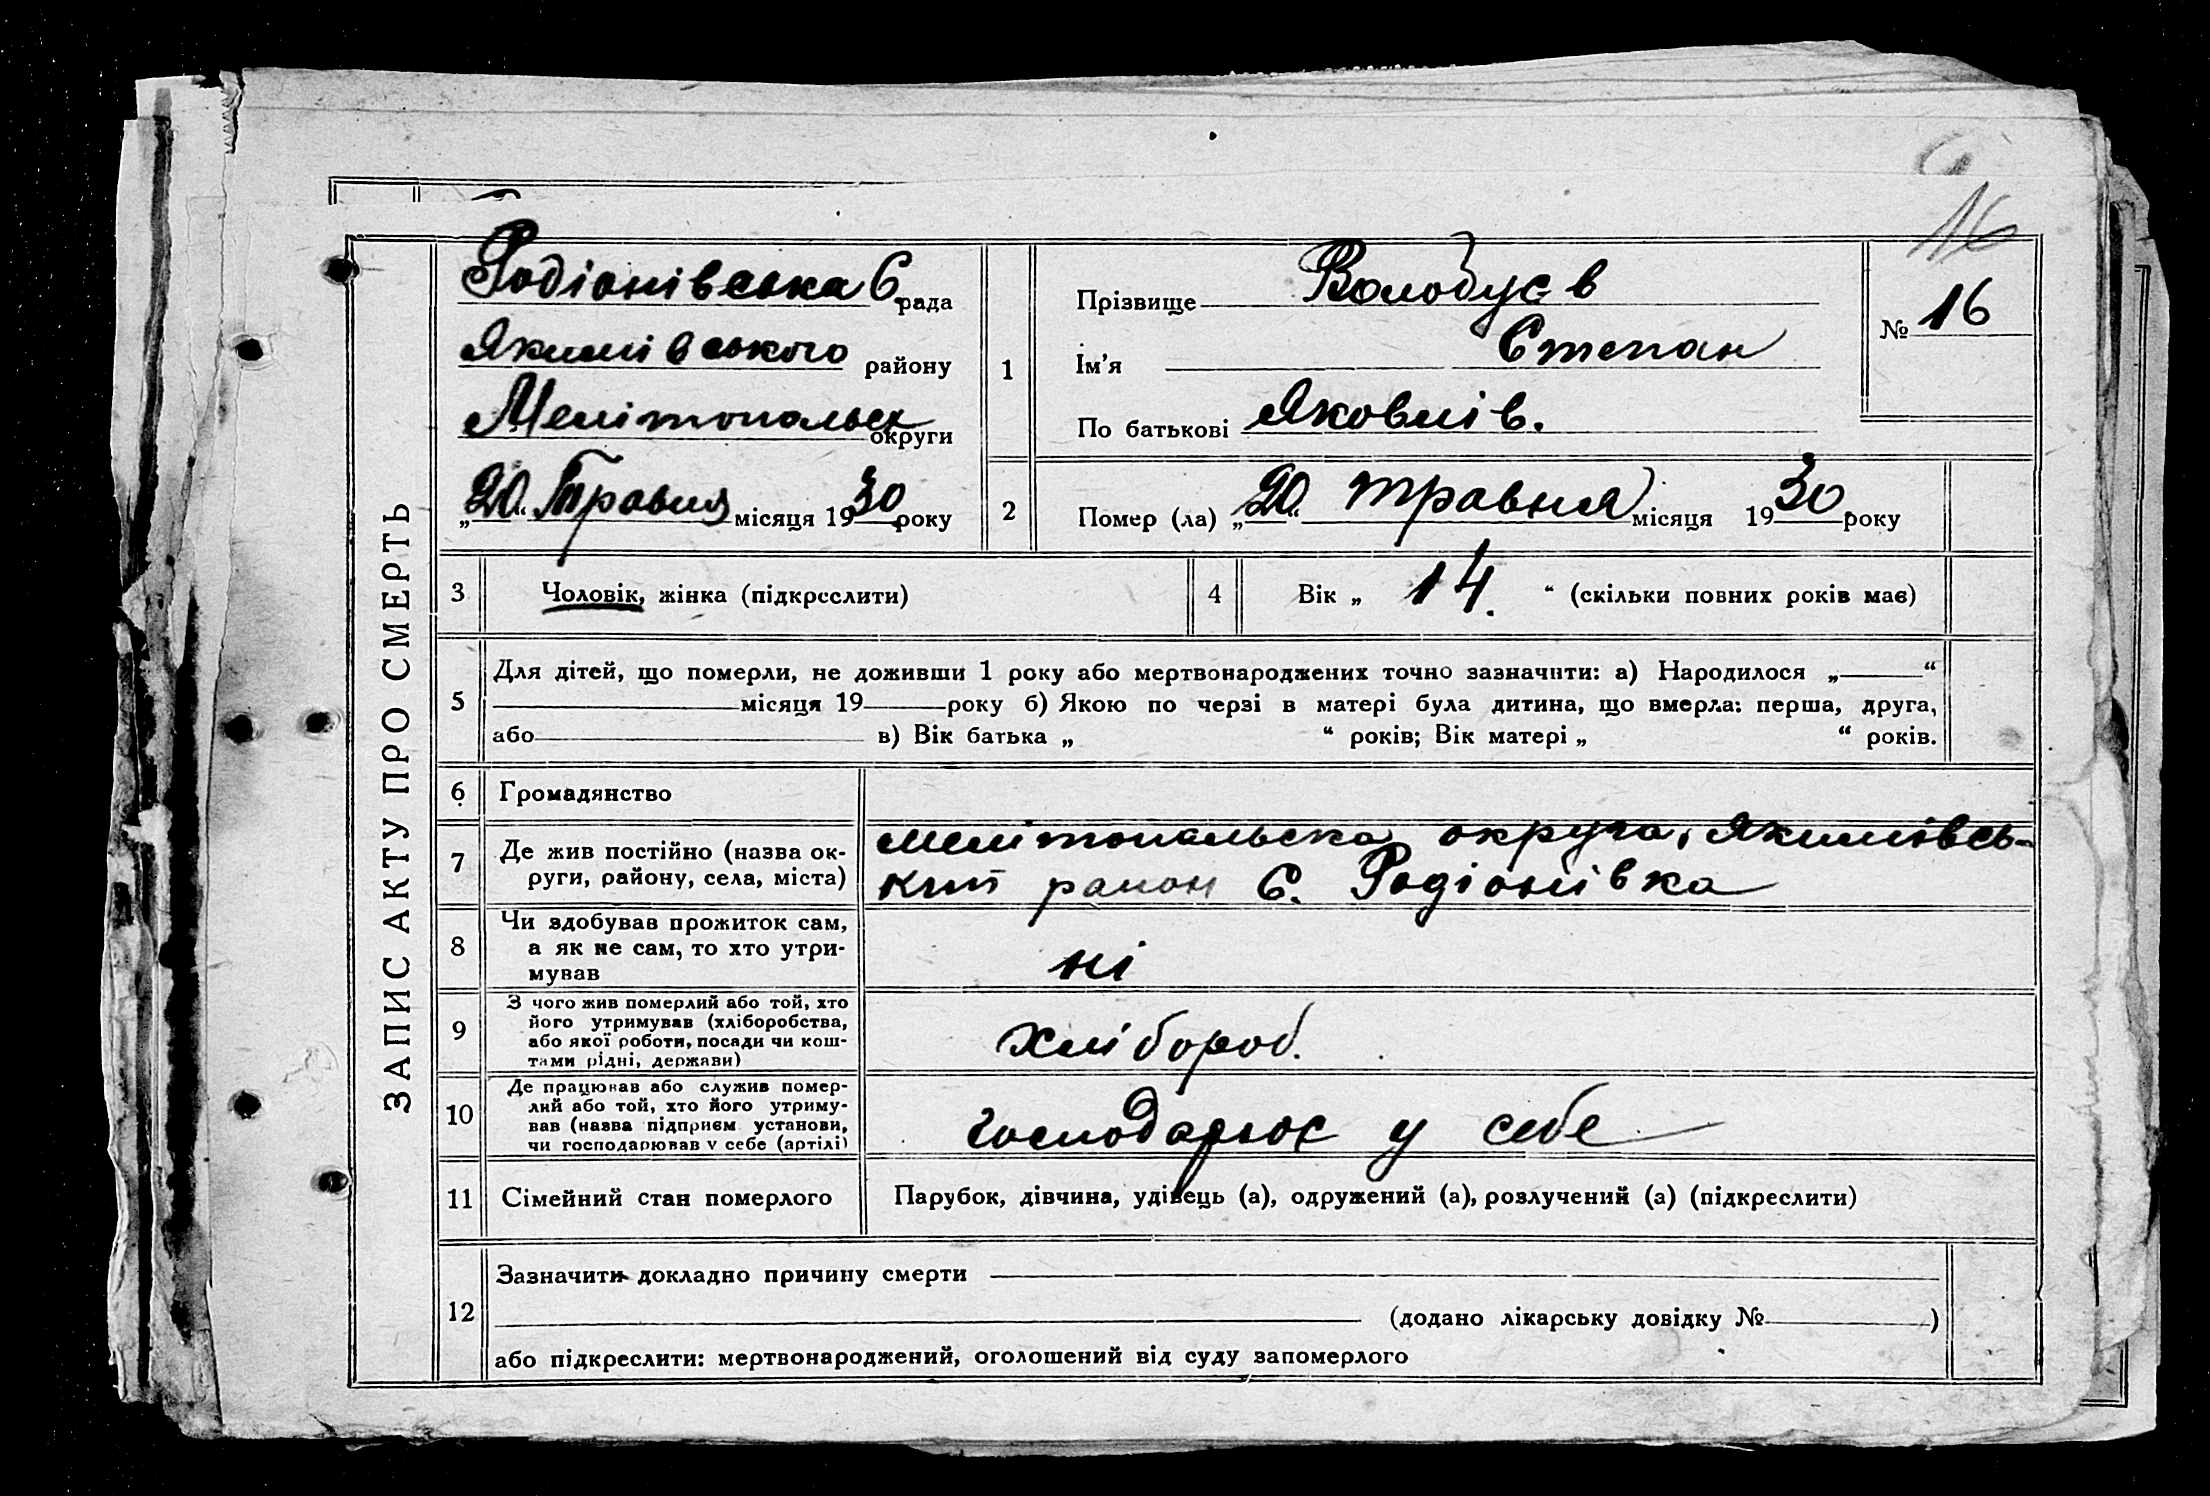 16
ЗАПИС АКТУ ПРО СМЕРТЬ
Родіонівська С рада
Якимівського району
Мелітопальськ округи
„20“ Травня місяця 1930 року
1
Прізвище Волобуєв
Ім’я Степан
По батькові Яковлів.
№ 16
2
Помер (ла) „20“ травня місяця 1930 року
3
Чоловік, жінка (підкреслити)
4
Вік „ 14. “ (скільки повних років має)
5
Для дітей, що померли, не доживши 1 року або мертвонароджених точно зазначити: а) Народилося „——“
——місяця 19——року б) Якою по черзі в матері була дитина, що вмерла: перша, друга,
або—— в) Вік батька „ “ років; Вік матері „ “ років.
6
Громадянство
7
Де жив постійно (назва ок-
руги, району, села, міста)
Мелітопальська округа, Якимівсь-
кий район С. Родіонівка
8
Чи здобував прожиток сам,
а як не сам, то хто утри-
мував
ні
9
З чого жив померлий або той, хто
його утримував (хліборобства,
або якої роботи, посади чи кош-
тами рідні, держави)
Хлібороб.
10
Де працював або служив помер-
лий або той, хто його утриму-
вав (назва підприєм. установи,
чи господарював у себе (артілі)
господарює у себе
11
Сімейний стан померлого
Парубок, дівчина, удівець (а), одружений (а), розлучений (а) (підкреслити)
12
Зазначити докладно причину смерти
(додано лікарську довідку №——)
або підкреслити: мертвонароджений, оголошений від суду запомерлого